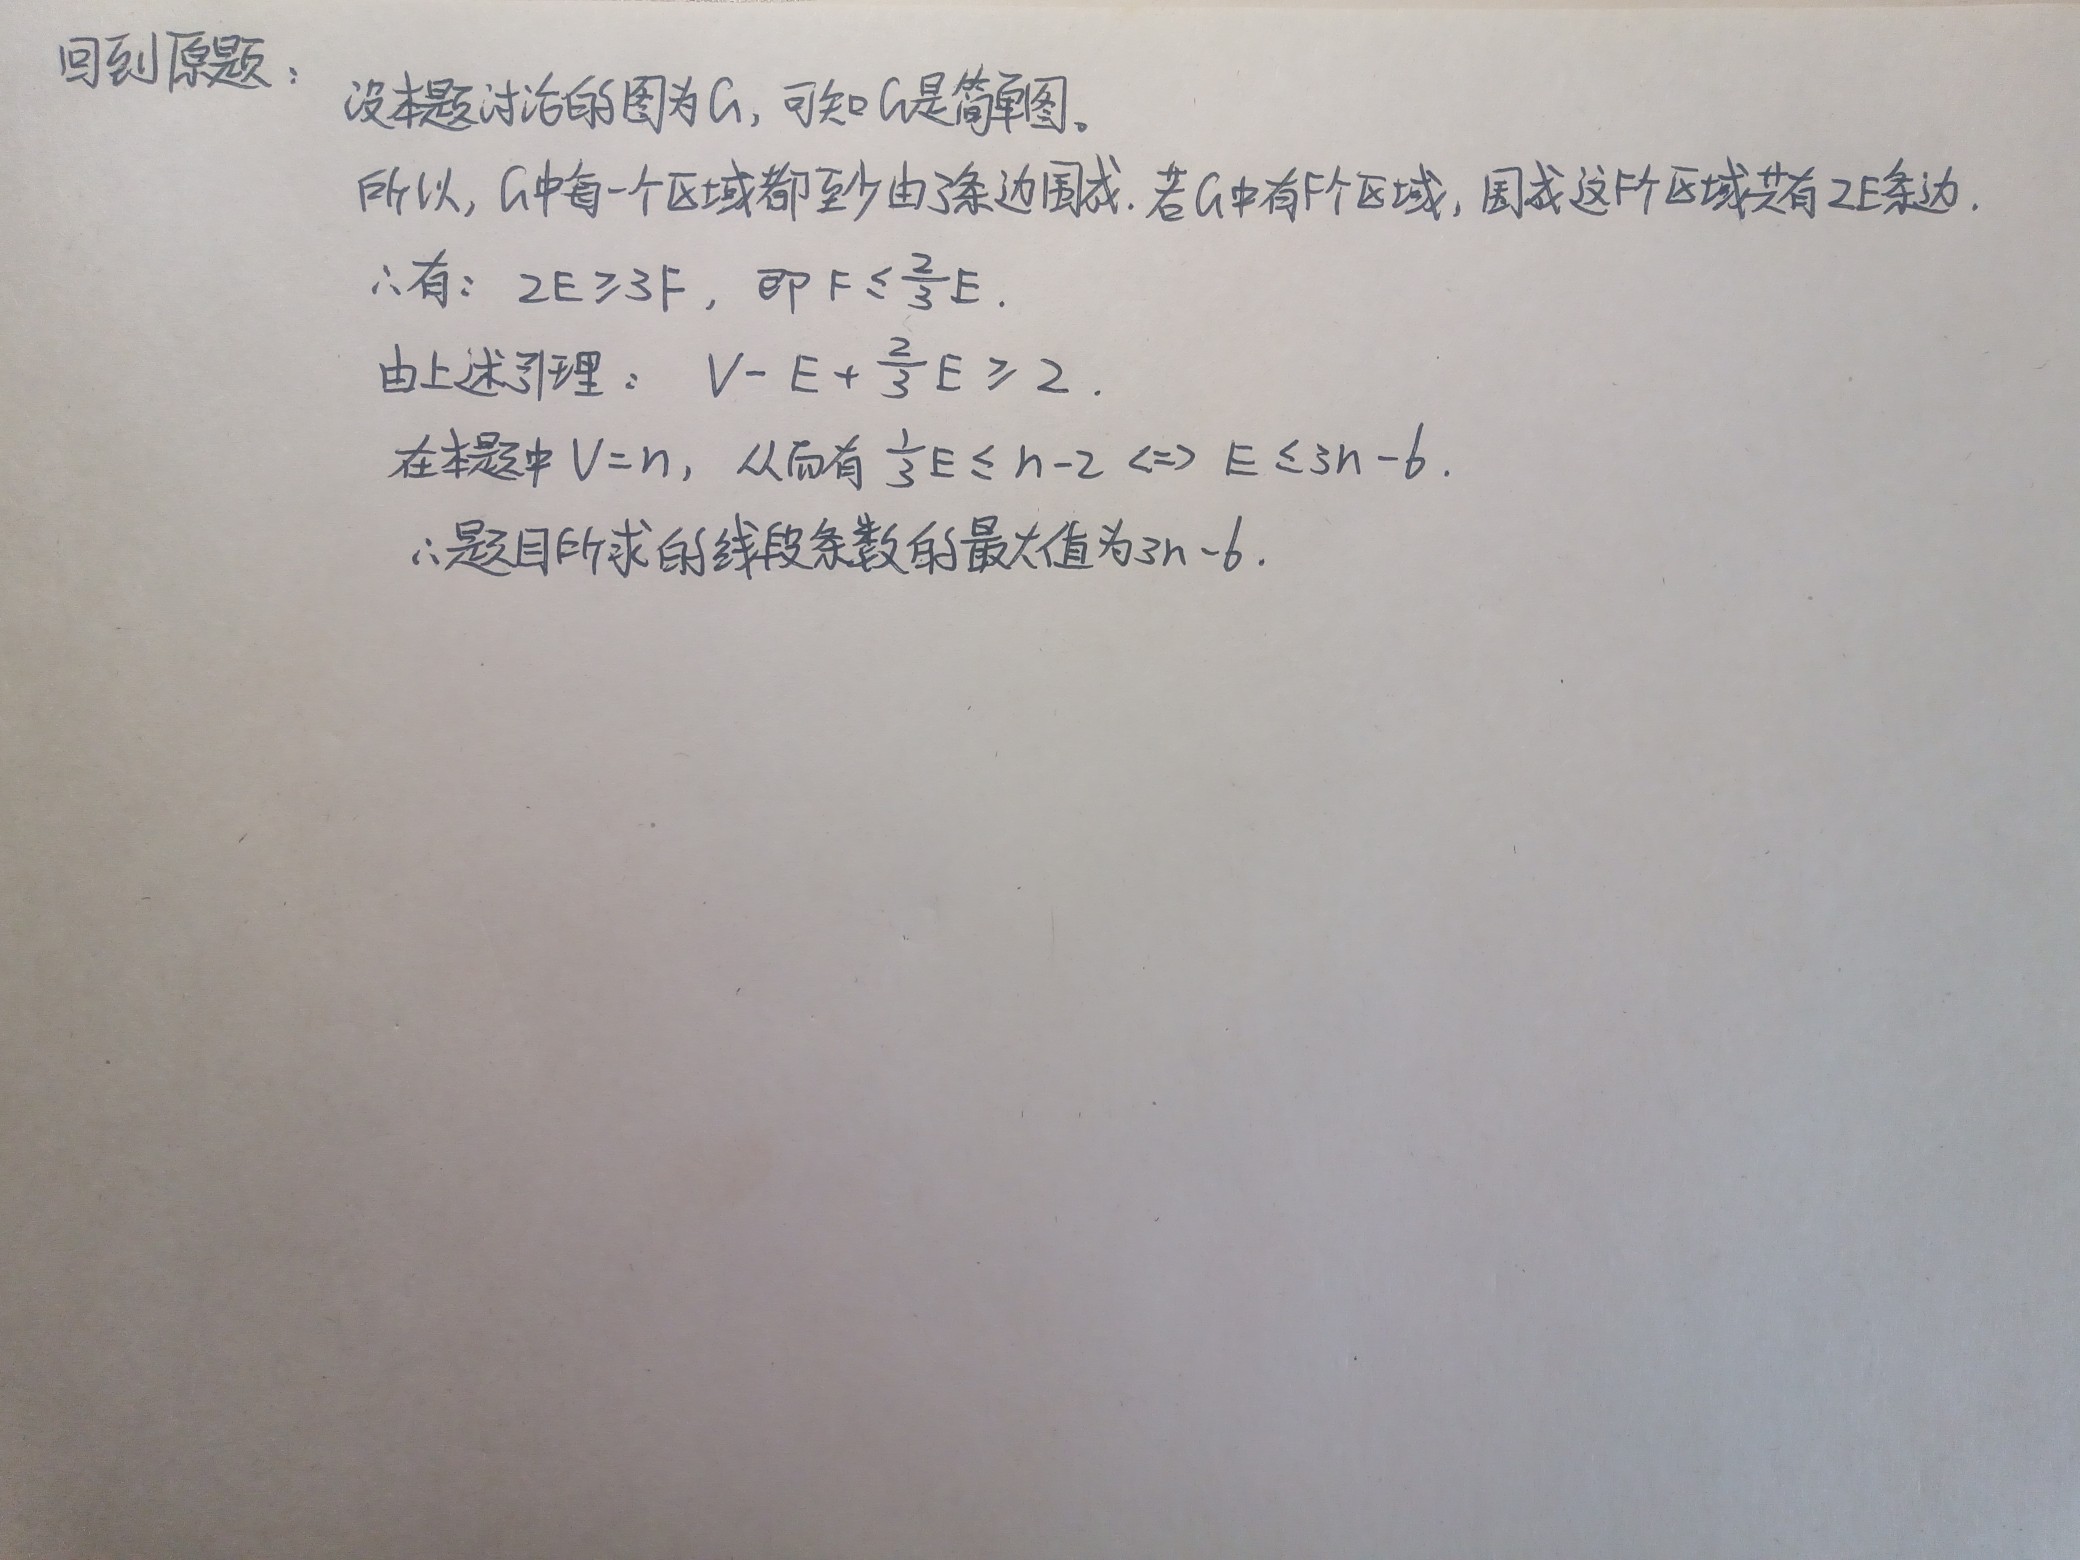 回到原题：
设本题讨论的图为G，可知G是简单图。
所以，G中每一个区域都至少由3条边围成．若G中有F个区域，围成这F个区域共有2E条边．
∴有：2E≥3F，即F≤\frac{2}{3}E．
由上述引理：V-E+\frac{2}{3}E≥2．
在本题中V=n，从而有\frac{1}{3}E≤n-2<=>E≤3n-6．
∴题目所求的线段条数的最大值为3n-6．